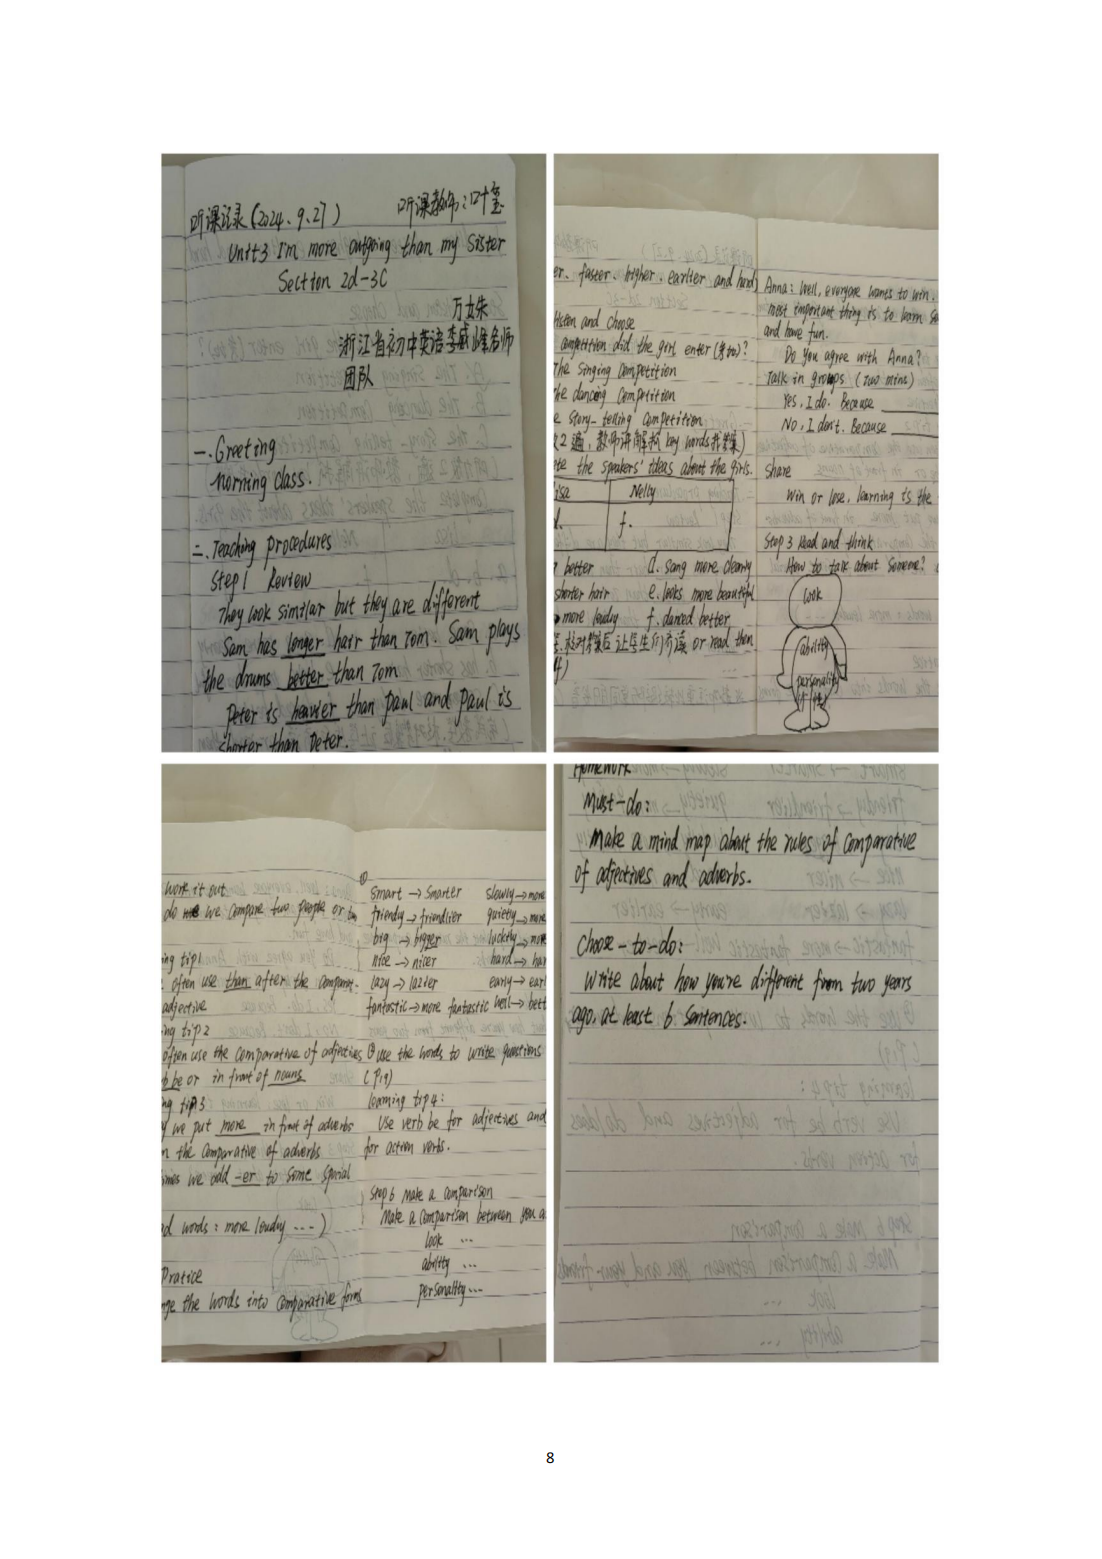 听课记录(2024.9.27) 听课教师:叶莹
Unit3 I'm more outgoing than my Sister
Section 2d-3C
万姝
浙江省初中英语李威峰名师
团队
一.Greeting
morning class.
二.Teaching procedures
Step1 Review
They look similar but they are different
Sam has longer hair than Tom. Sam plays
the drums better than Tom
Peter is heavier than Paul and Paul is
shorter than Peter.
er. faster. higher. earlier and hard)
listen and choose
ompetition did the girl enter(参加)?
The Singing Competition
he dancing Competition
e Story-telling Competition
2遍, 教师讲解 key words
te the speakers' ideas about the girls.
isa Nelly
d. f.
better d. sang more clearly
shorter hair e. looks more beautiful
more loudly f. danced better
核对答案后让学生们齐读 or read then
Anna: Well, everyone wants to win.
most important thing is to learn
and have fun.
Do you agree with Anna?
Talk in groups (Two mins)
Yes, I do. Because
No, I don't. Because
Share
Win or lose, learning is the
Step 3 Read and think
How to talk about Someone?
look
ability
personality
work it out
do we we compare two people or
ing tip1
often use than after the compar-
adjective
ng tip2
often use the comparative of adjectives
b be or in front of nouns
ng tip3
y we put more in front of adverbs
n the comparative of adverbs
times we add -er to some special
d words: more loudly ...)
Pratice
nge the words into comparative forms
①
smart → smarter slowly → more
friendy → friendlier quietly → more
big → bigger luckily → more
nice → nicer hard → har
lazy → lazier early → earl
fantastic → more fantastic well → bett
②use the words to write questions
(P19)
learning tip4:
Use verb be for adjectives and
for action verbs.
Step 6 Make a comparison
Make a comparison between you a
look ...
ability ...
personality...
Homework
Must-do:
Make a mind map about the rules of comparative
of adjectives and adverbs.
Choose-to-do:
Write about how you're different from two years
ago. at least 6 sentences.
8